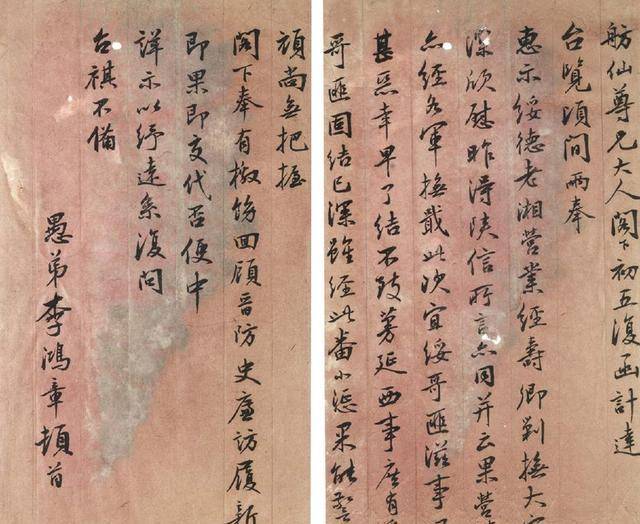 舫仙尊兄大人閣下初五復函計達
台覽頃間兩奉
惠示綏德老湘營業經壽卿剿撫大定
深欣慰昨得陝信所言亦同并云果營
亦經各軍撫戢此次宜綏哥匪滋事
甚惡幸早了結不致蔓延西事庶有
哥匪固結已深雖經此番小懲果能警
頑尚無把握
閣下奉有檄飭回顧晉防史廉訪履新
即果即交代否便中
詳示以紓遠系復問
台祺不備
愚弟李鴻章頓首